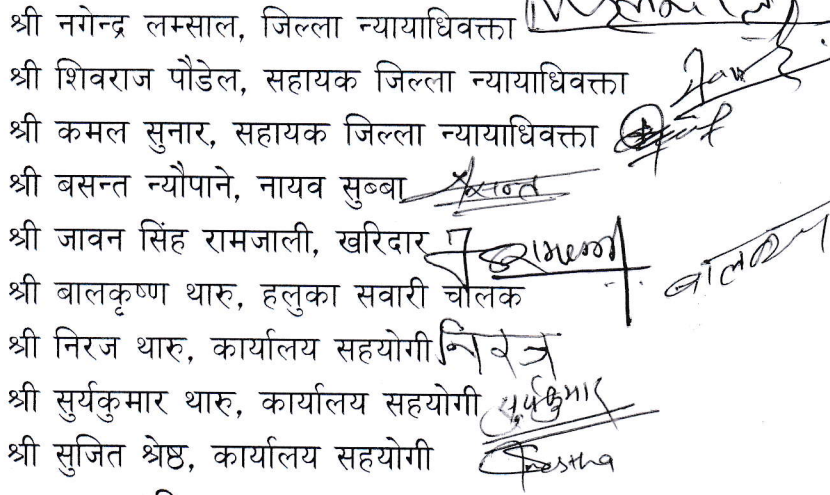 श्री नगेन्द्र लम्साल, जिल्ला न्यायाधिवक्ता
श्री शिवराज पौडेल, सहायक जिल्ला न्यायाधिवक्ता
श्री कमल सुनार, सहायक जिल्ला न्यायाधिवक्ता
श्री बसन्त न्यौपाने, नायव सुब्बा बसन्त
श्री जावन सिंह रामजाली, खरिदार
श्री बालकृष्ण थारु, हलुका सवारी चालक
श्री निरज थारु, कार्यालय सहयोगी निरज
श्री सुर्यकुमार थारु, कार्यालय सहयोगी सुर्यकुमार
श्री सुजित श्रेष्ठ, कार्यालय सहयोगी Shrestha